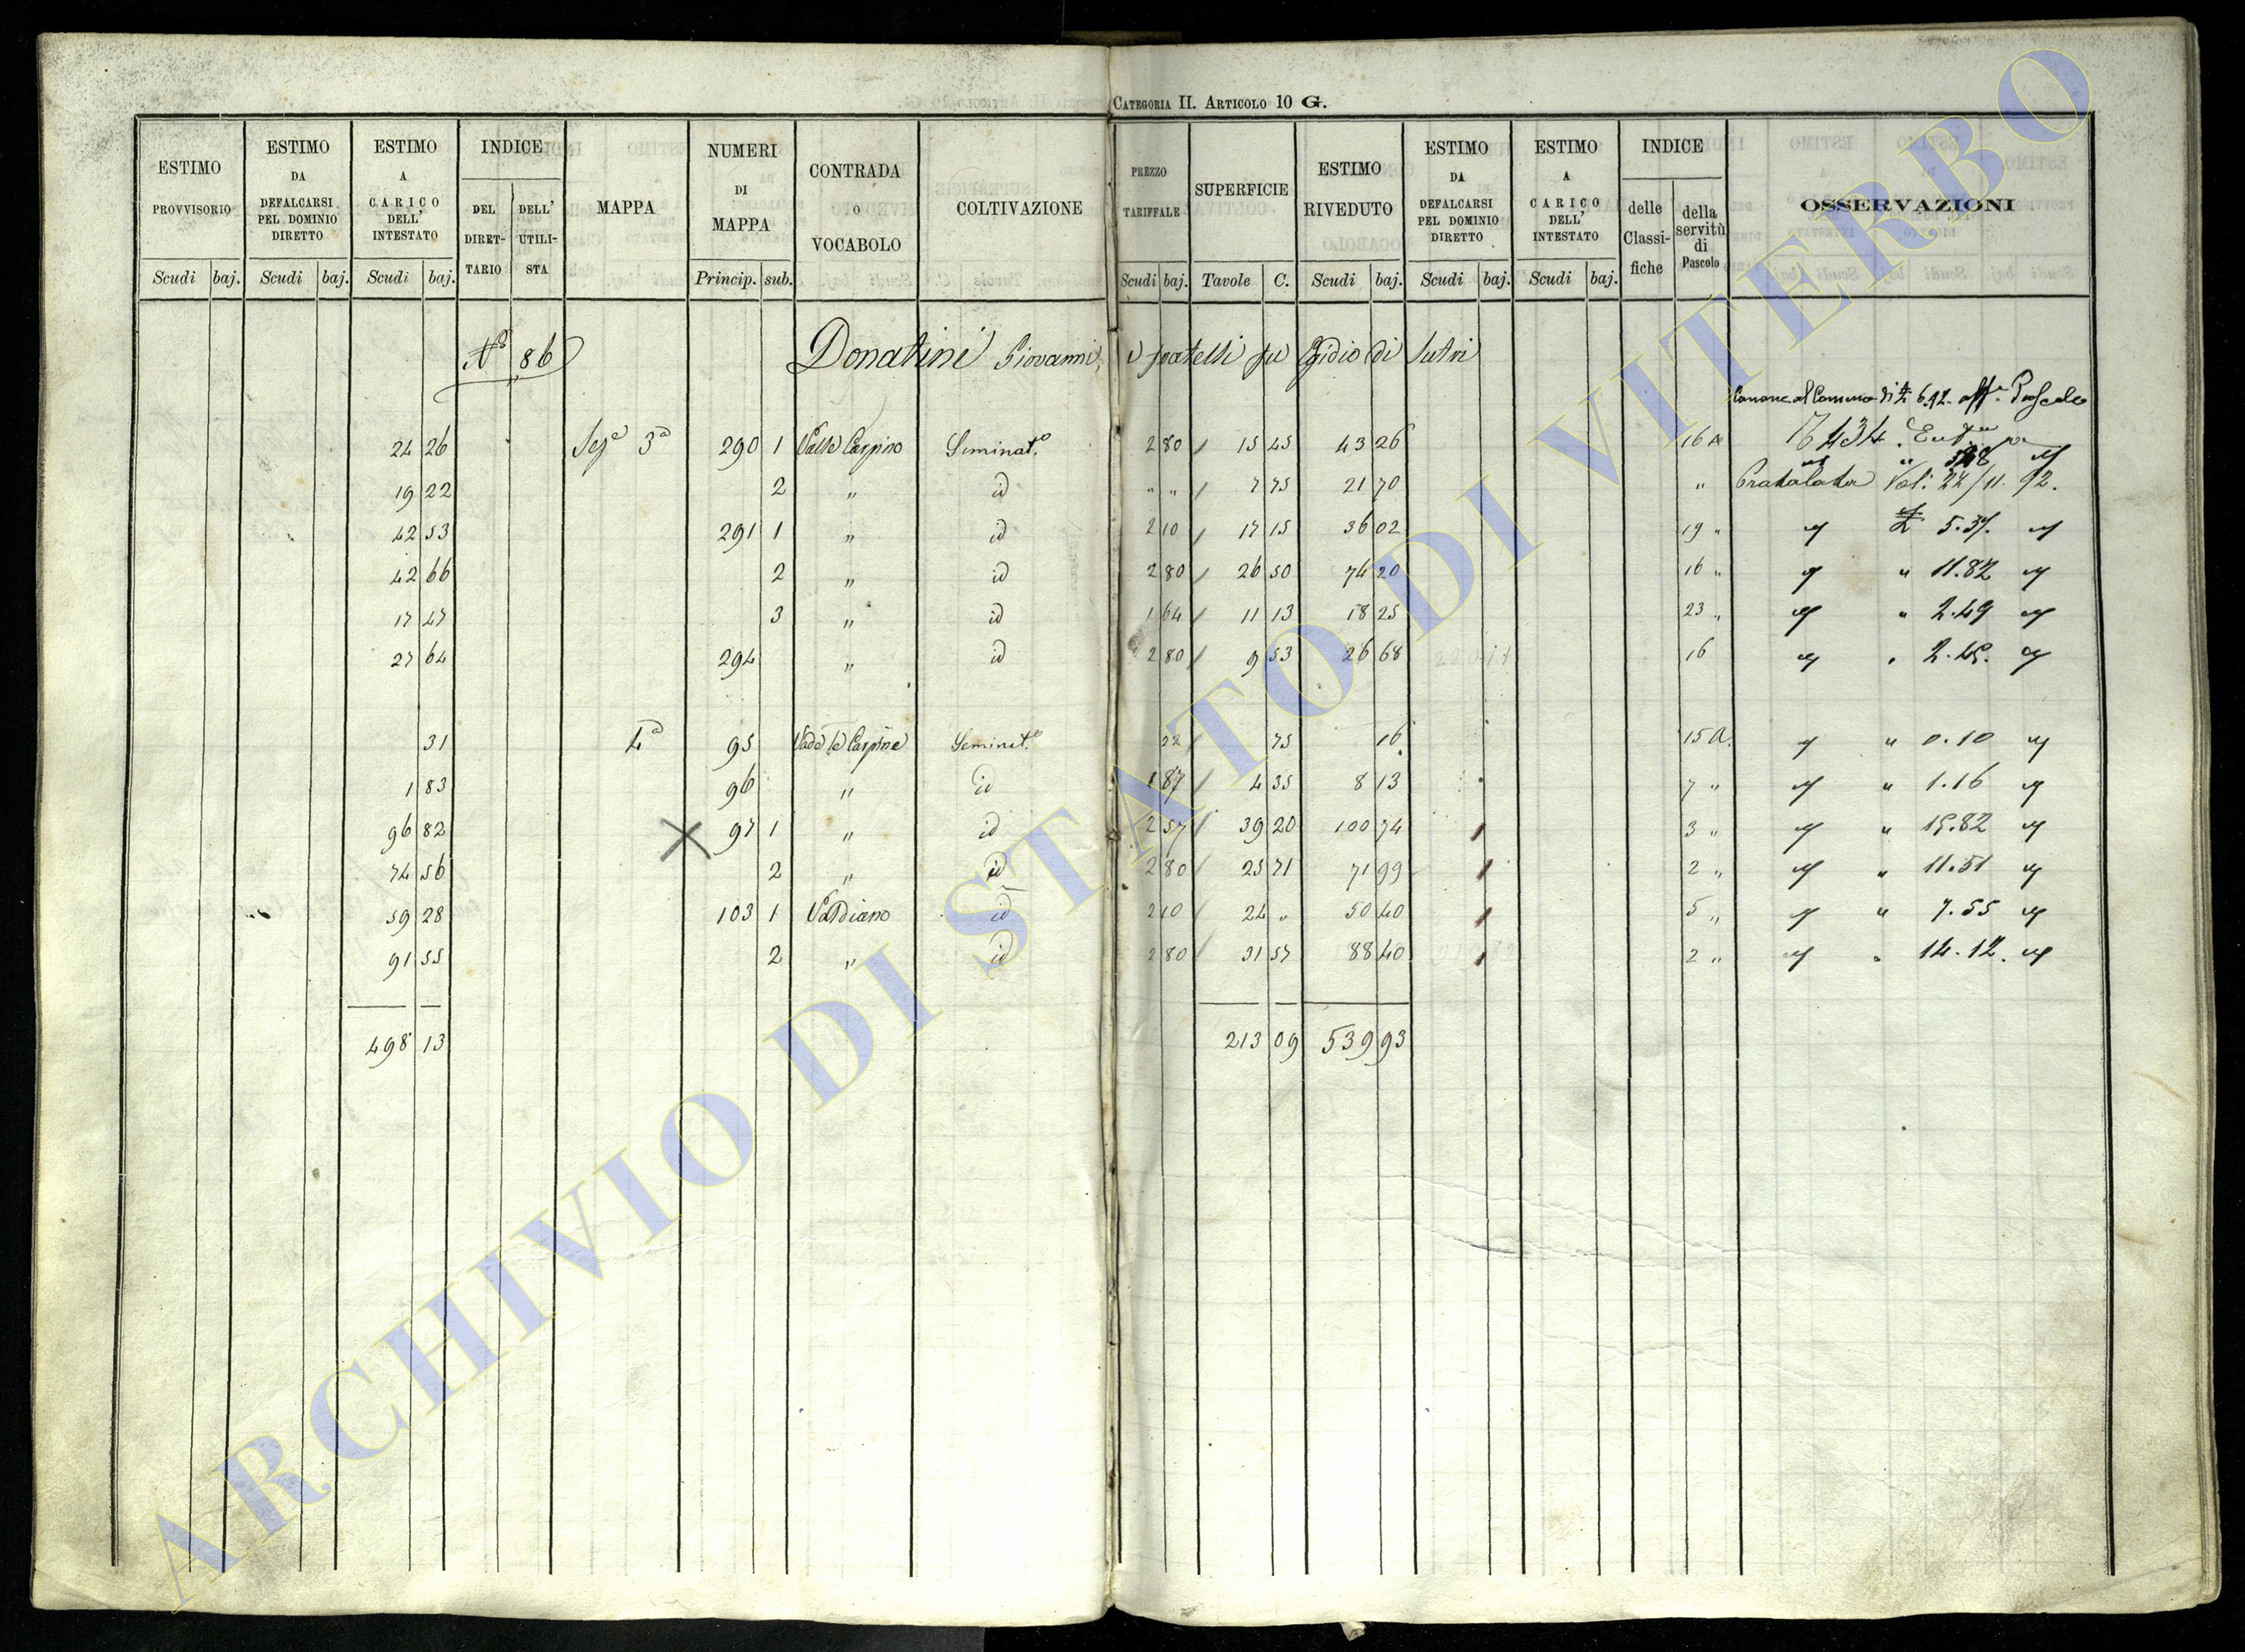 CATEGORIA II. ARTICOLO 10 G.
ESTIMO PROVVISORIO Scudi baj.
ESTIMO DA DEFALCARSI PEL DOMINIO DIRETTO Scudi baj.
ESTIMO A CARICO DELL' INTESTATO Scudi baj.
INDICE DEL DIRET-TARIO DELL' UTILI-STA
MAPPA
NUMERI DI MAPPA Princip. sub.
CONTRADA O VOCABOLO
COLTIVAZIONE
PREZZO TARIFFALE Scudi baj.
SUPERFICIE Tavole C.
ESTIMO RIVEDUTO Scudi baj.
ESTIMO DA DEFALCARSI PEL DOMINIO DIRETTO Scudi baj.
ESTIMO A CARICO DELL' INTESTATO Scudi baj.
INDICE delle Classi-fiche della servitù di Pascolo
OSSERVAZIONI
No 86 Donatini Giovanni, e fratelli fu Egidio di Sutri
Canone al Comune di £ 6.92.
24 26 Seze 3a 290 1 Valle Carpino Seminat.o 2 80 15 45 43 26 16 A
19 22 2 " id " " 7 75 21 70 "
42 53 291 1 " id 2 10 17 15 36 02 19 " £ 5.37.
42 66 2 " id 2 80 26 50 74 20 16 " " 11.82
17 47 3 " id 1 64 11 13 18 25 23 " " 2.49
27 64 294 " id 2 80 9 53 26 68 16
31 4a 95 Seminat.o 22 75 16 15 A. " 0.10
1 83 96 " id 1 87 4 35 8 13 7 " " 1.16
96 82 97 1 " id 2 57 39 20 100 74 3 " " 15.82
74 56 2 " id 2 80 25 71 71 99 2 " " 11.51
59 28 103 1 Valdiano id 2 10 24 " 50 40 5 " " 7.55
91 55 2 " id 2 80 31 57 88 40 2 " 14.12.
498 13 213 09 539 93
ARCHIVIO DI STATO DI VITERBO